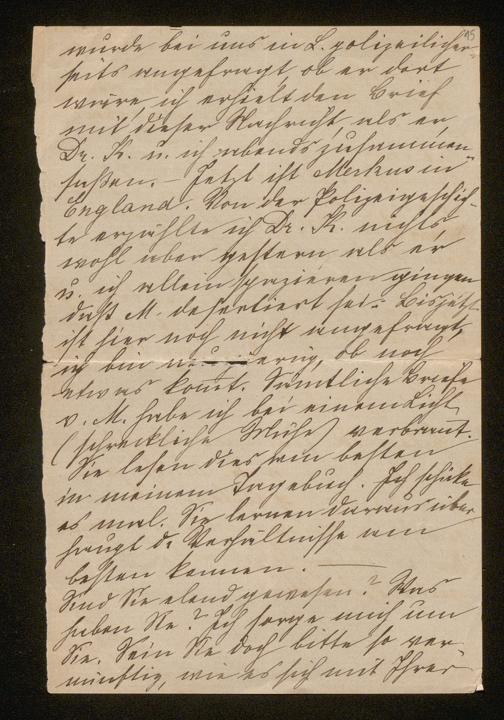 95
wurde bei uns in L. polizeilicher-
seits angefragt, ob er dort
wäre, ich erhielt den Brief
mit dieser Nachricht, als er,
Dr. K. u. ich abends zusammen
saßen. – Jetzt ist Merkus in
England. Von der Polizeigeschich-
te erzählte ich Dr. K. nichts
wohl aber gestern als er
u. ich allein spazieren gingen
daß M. desertiert sei. Bis jetzt
ist hier noch nicht angefragt,
ich bin neugierig, ob noch
etwas kommt. Sämtliche Briefe
v. M. habe ich bei einem Licht
(schreckliche Mühe) verbrannt.
Sie lesen dies am besten
in meinem Tagebuch. Ich schicke
es mal. Sie lernen daraus über-
haupt d. Verhältnisse am
besten kennen.
Sind Sie elend gewesen? Was
haben Sie? Ich sorge mich um
Sie. Sein Sie doch bitte so ver-
nünftig, wie es sich mit Ihrer